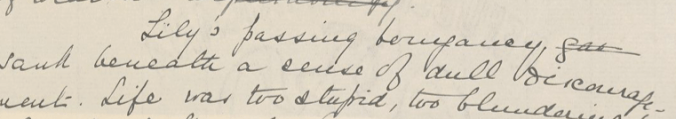 Lily's passing buoyancy ~~gav~~
sank beneath a sense of dull discourage-
ment. Life was too stupid, too blundering